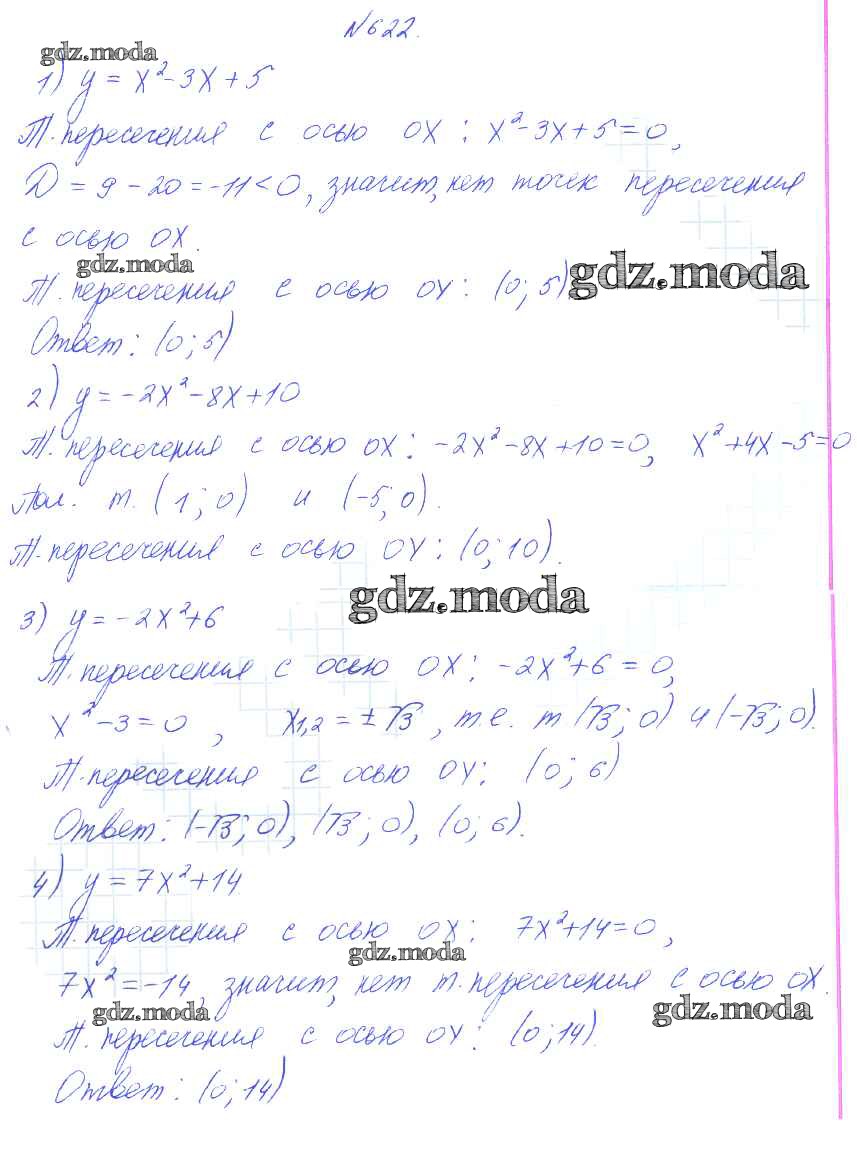 №622.
gdz.moda
1) y = x²-3x+5
Т. пересечения с осью OX : x²-3x+5=0,
D = 9-20=-11<0, значит, нет точек пересечения
с осью OX.
gdz.moda
Т. пересечения с осью OY: (0; 5)
gdz.moda
Ответ: (0; 5)
2) y = -2x²-8x+10
Т. пересечения с осью OX: -2x²-8x+10=0, x²+4x-5=0
Пол. т. (1; 0) и (-5; 0).
Т. пересечения с осью OY: (0; 10).
gdz.moda
3) y = -2x²+6
Т. пересечения с осью OX: -2x²+6=0,
x²-3=0, x1,2 = ±√3, т.е. т (√3; 0) и (-√3; 0).
Т. пересечения с осью OY: (0; 6)
Ответ: (-√3; 0), (√3; 0), (0; 6).
4) y = 7x²+14
Т. пересечения с осью OX: 7x²+14=0,
gdz.moda
7x²=-14, значит, нет т. пересечения с осью OX.
gdz.moda
gdz.moda
Т. пересечения с осью OY: (0; 14).
Ответ: (0; 14)